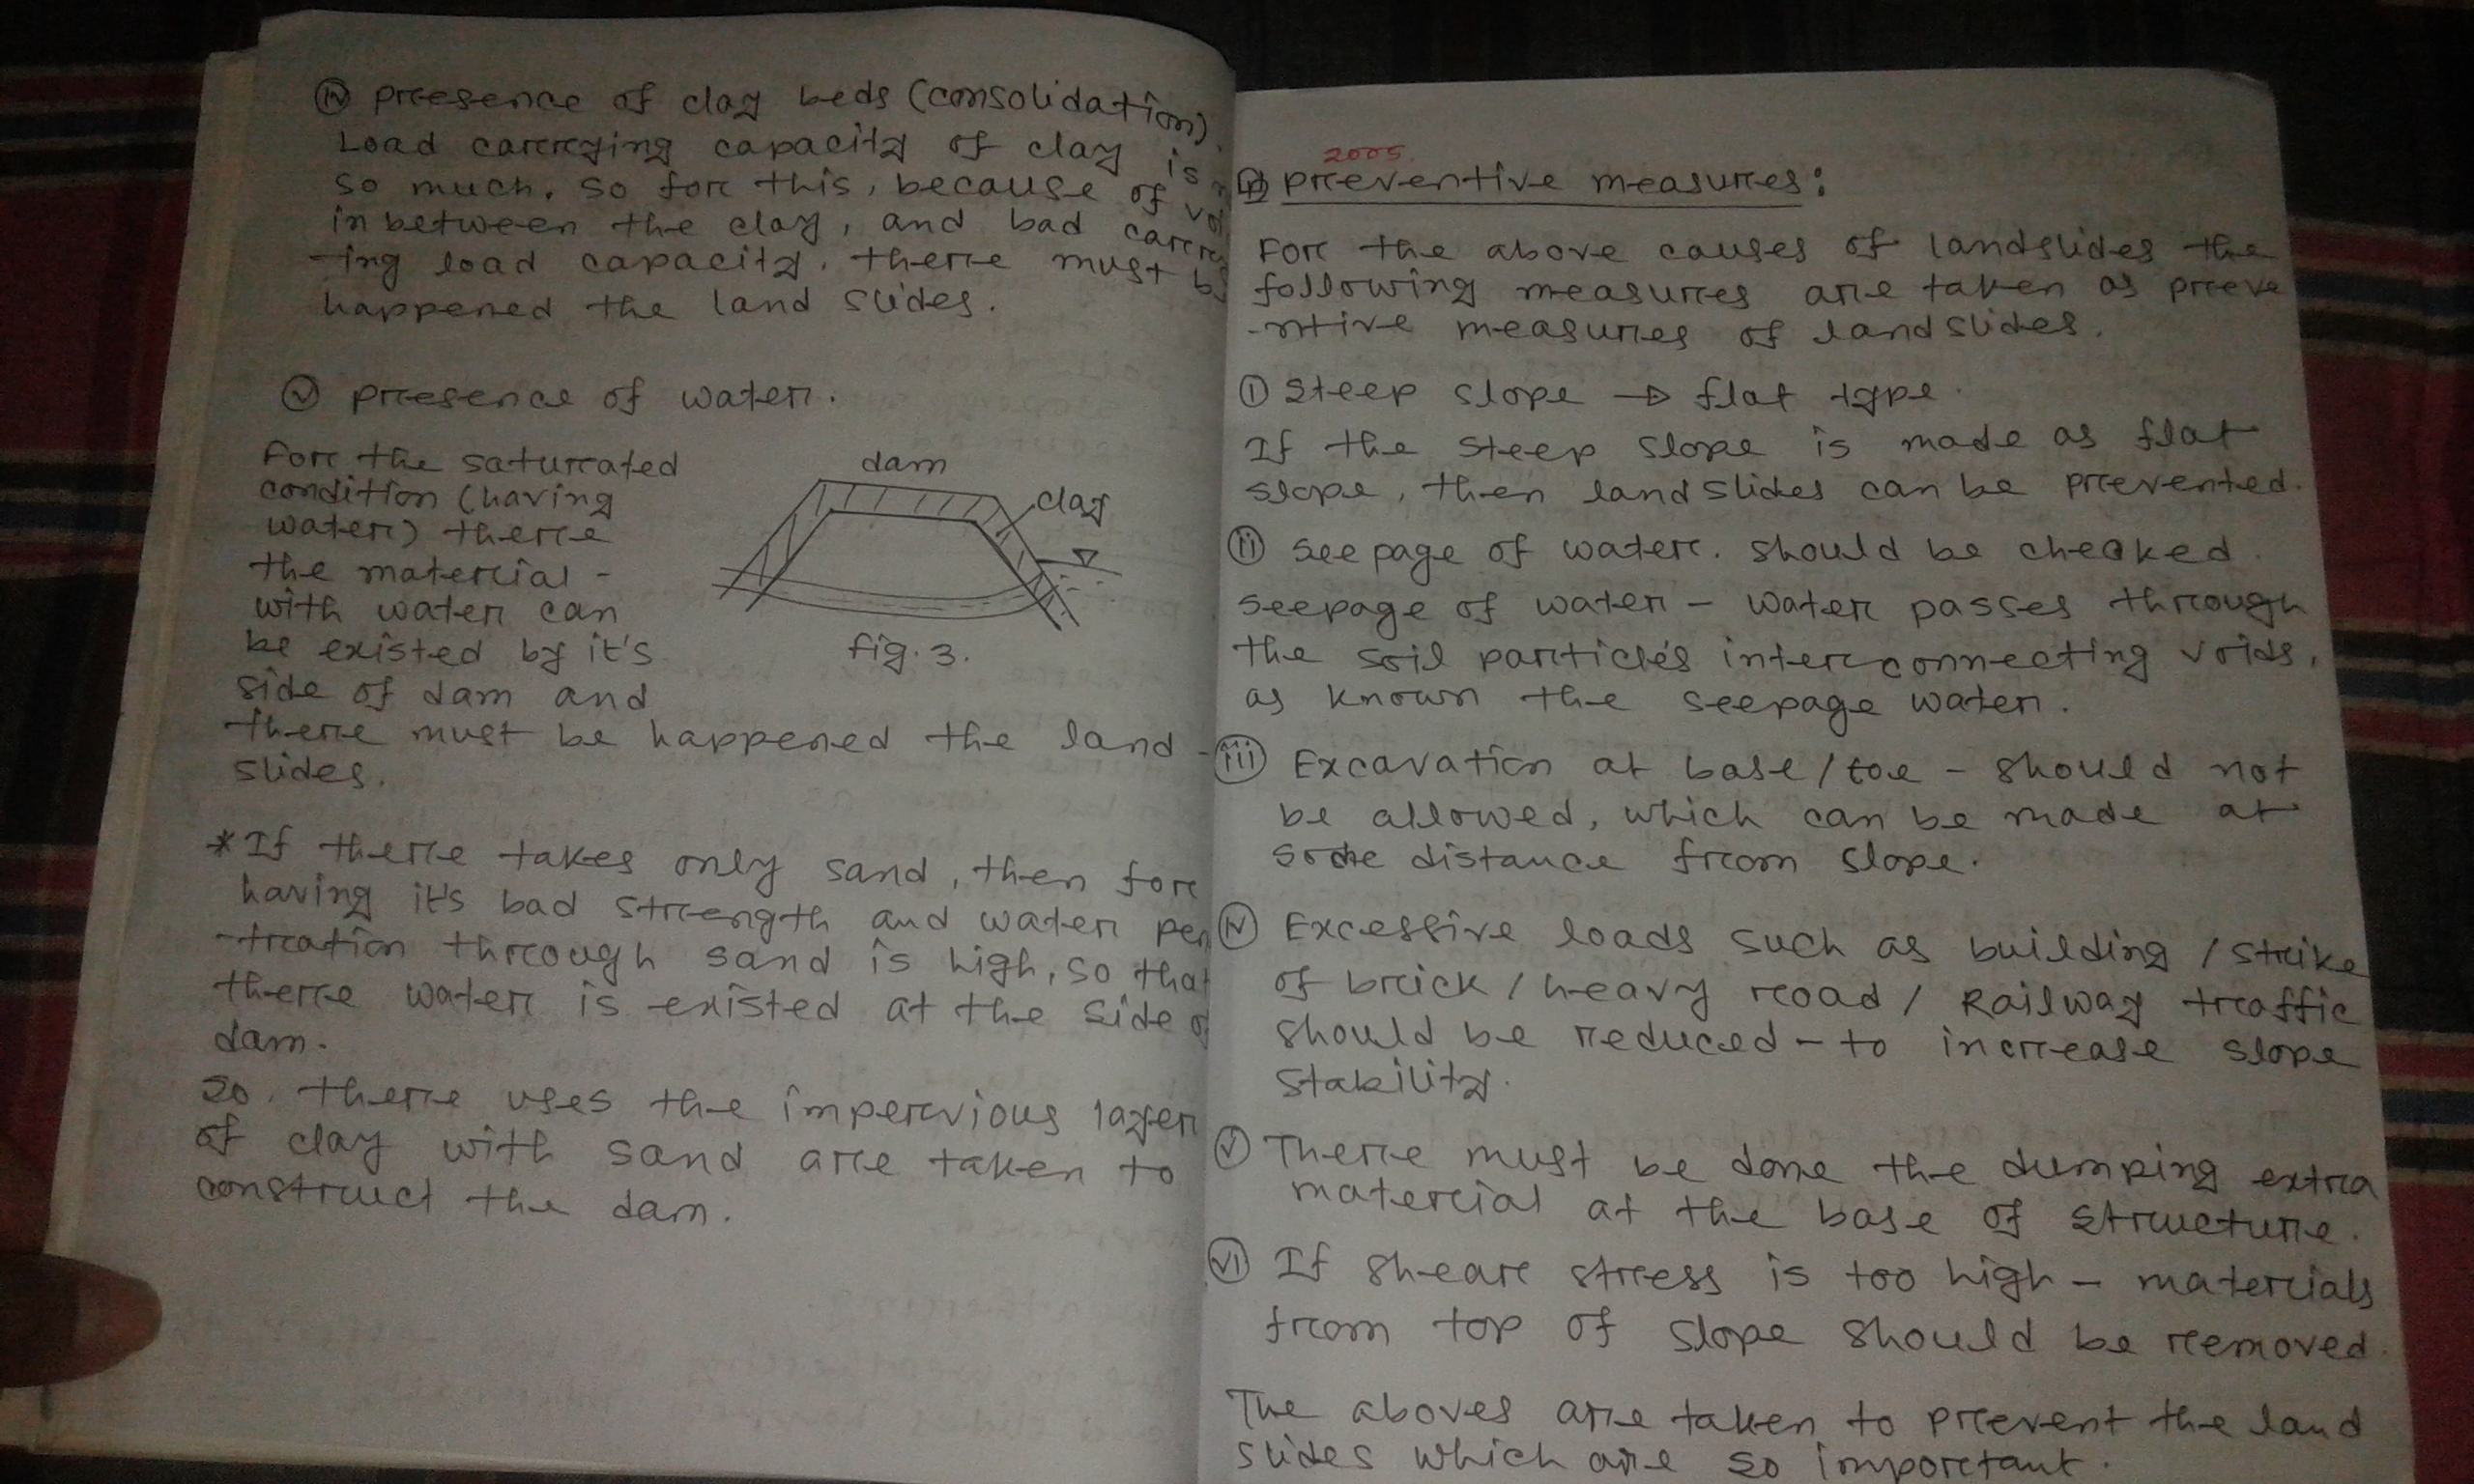 (iv) presence of clay beds (consolidation).
Load carrying capacity of clay is
so much. so for this, because of
in between the clay, and bad carry
-ing load capacity. there must be
happened the land slides.
(v) presence of water.
For the saturated
condition (having
water) there
the material -
with water can
be existed by it's
side of dam and
there must be happened the land -
slides.
dam
clay
fig. 3.
*If there takes only sand, then for
having it's bad strength and water pen
-tration through sand is high, so that
there water is existed at the side of
dam.
So, there uses the impervious layer
of clay with sand are taken to
construct the dam.
2005.
preventive measures:
For the above causes of landslides the
following measures are taken as preve
-ntive measures of landslides.
(i) Steep slope → flat type.
If the steep slope is made as flat
slope, then landslides can be prevented.
(ii) seepage of water. should be cheaked.
seepage of water - water passes through
the soil particles interconnecting voids,
as known the seepage water.
(iii) Excavation at base/toe - should not
be allowed, which can be made at
some distance from slope.
(iv) Excessive loads such as building / strike
of brick / heavy road / Railway traffic
should be reduced - to increase slope
stability.
(v) There must be done the dumping extra
material at the base of structure.
(vi) If sheare stress is too high - materials
from top of slope should be removed.
The aboves are taken to prevent the land
slides which are so important.